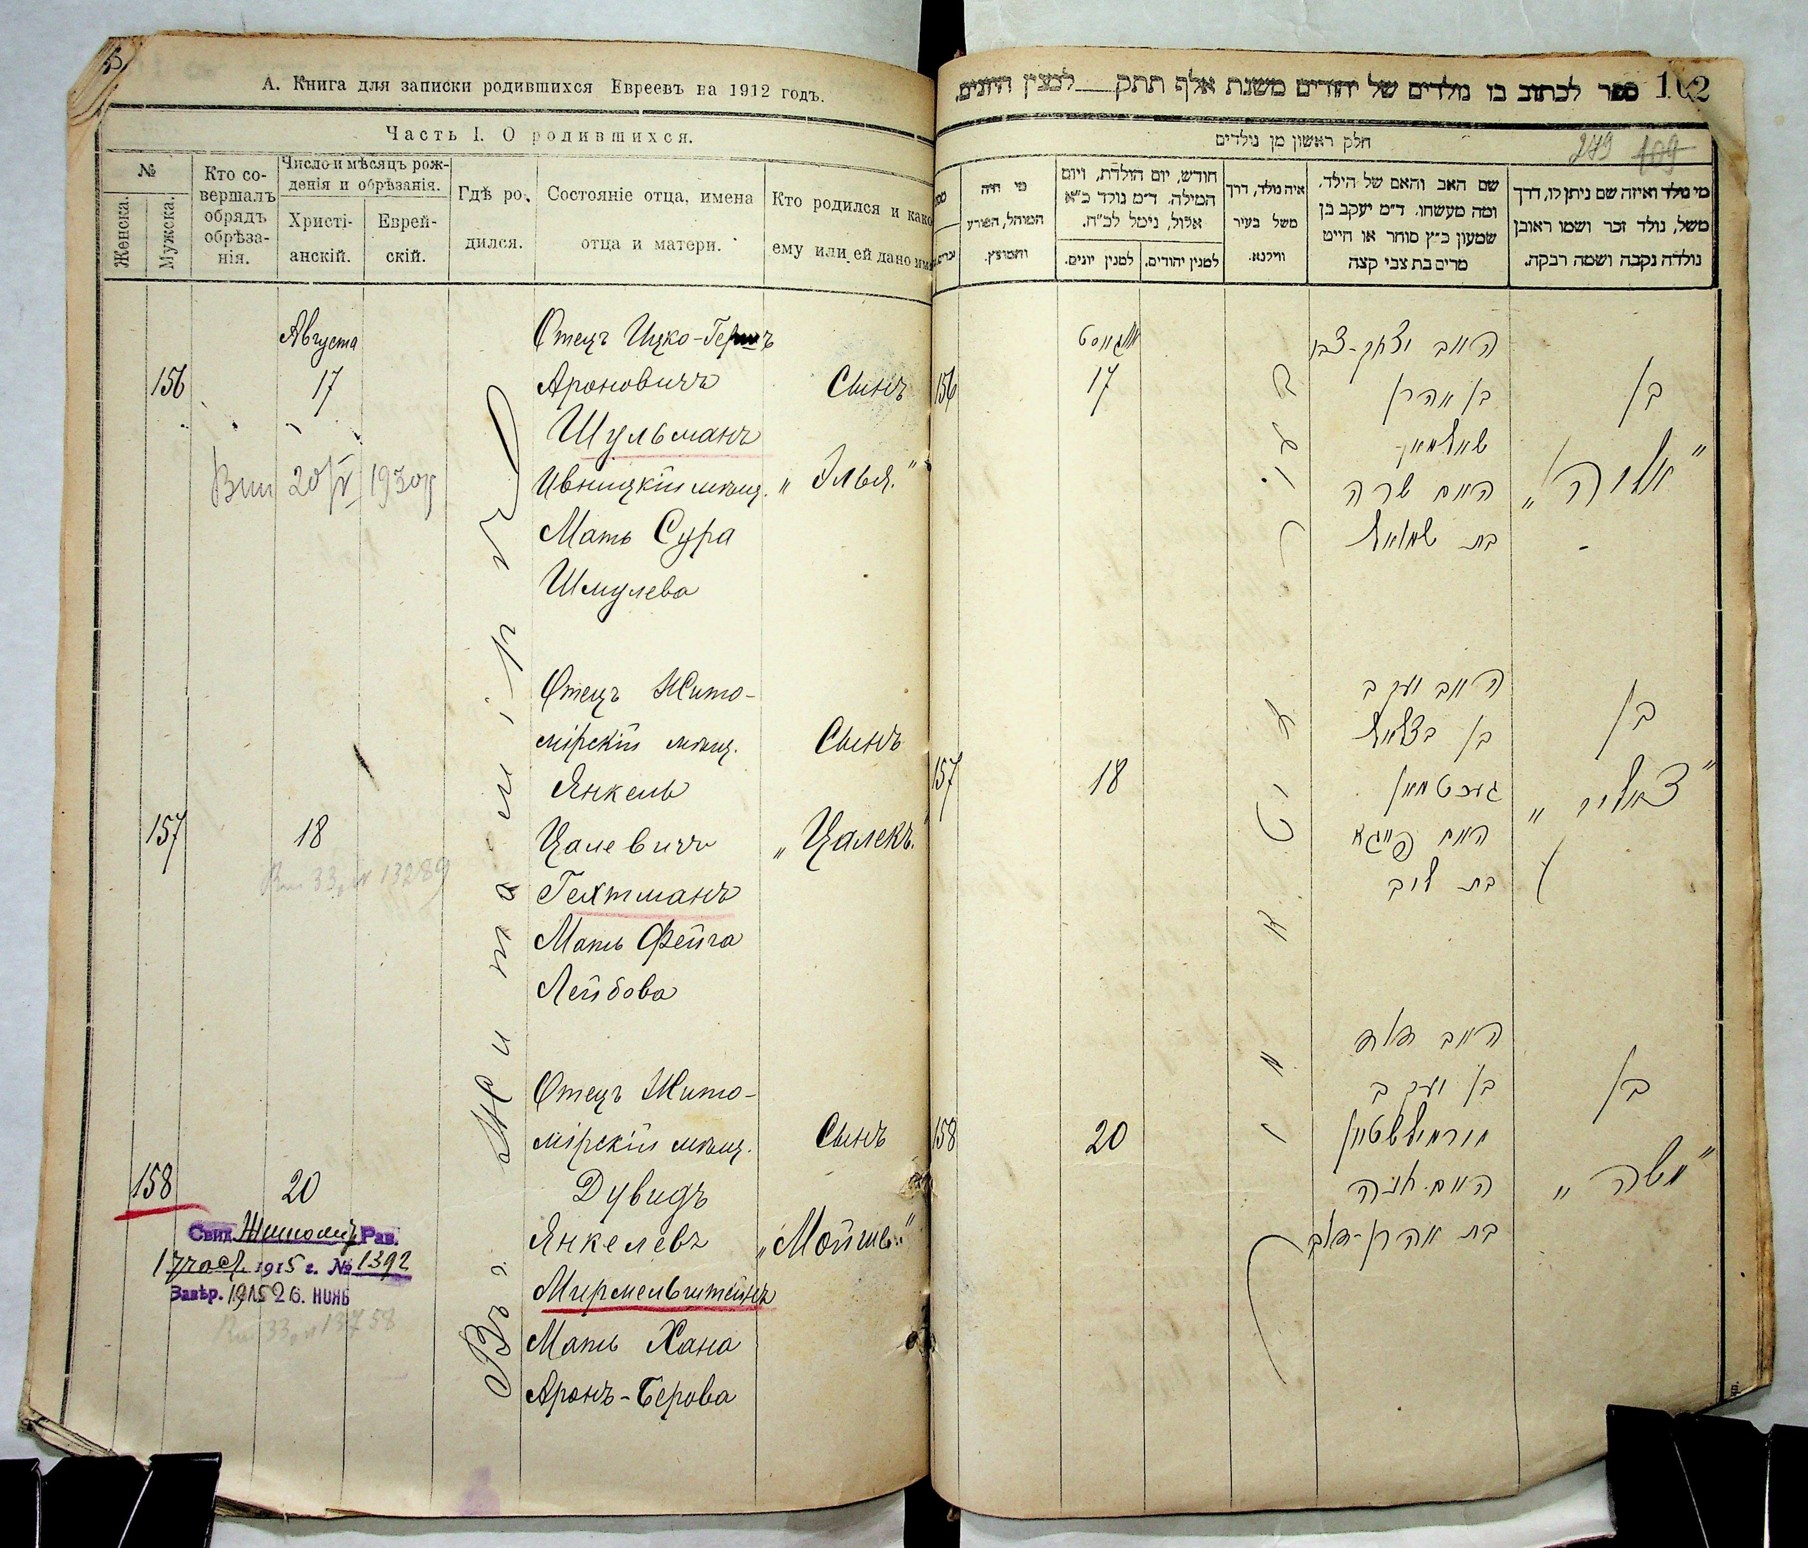 А. Книга для записки родившихся Евреевъ на 1912 годъ.
Часть I. О родившихся.
№
Женска.
Мужска.
Кто совершалъ обрядъ обрѣзанія.
Число и мѣсяцъ рожденія и обрѣзанія.
Христіанскій.
Еврейскій.
Гдѣ родился.
Состояніе отца, имена отца и матери.
Кто родился и како
ему или ей дано имя
Въ г. Житомірѣ
Августа
156
17
Отецъ Ицко-Гершъ
Ароновичъ
Шульманъ
Ивницкій мѣщ.
Мать Сура
Шмулева
Сынъ
„Элья.“
20/IV 1930
157
18
Отецъ Жито-
мірскій мѣщ.
Янкель
Цалевичъ
Гехтманъ
Мать Фейга
Лейбова
Сынъ
„Цалекъ.“
33 № 13289
158
20
Отецъ Жито-
мірскій мѣщ.
Дувидъ
Янкелевъ
Мирмельштейнъ
Мать Хана
Аронъ-Берова
Сынъ
„Мойше.“
Свид. Житомір Рав.
1915 г. № 1392
Завѣр. 1915 26. ИЮНЬ
ספר לכתוב בו נולדים של יהודים משנת אלף תתק___למנין היונים.
102
219 109
חלק ראשון מן נולדים
מי היה המוהל, הפורע והמוצץ.
חודש, יום הולדת, ויום
המילה. ד״מ נולד כ״א
אלול, נימל לכ״ח.
למנין יונים.
למנין יהודים.
איה נולד, דרך
משל בעיר
ווילנא.
שם האב והאם של הילד,
ומה מעשהו. ד״מ יעקב בן
שמעון כ״ץ סוחר או חייט
מרים בת צבי קצה
מי נולד ואיזה שם ניתן לו, דרך
משל, נולד זכר ושמו ראובן
נולדה נקבה ושמה רבקה.
אווגוסט
156
17
האב יצחק-צבי
בן אהרן
שולמאן
האם שרה
בת שמואל
בן
„אליה“
157
18
האב יעקב
בן בצלאל
געכטמאן
האם פייגא
בת ליב
בן
„צאליק“
158
20
האב דוד
בן יעקב
מירמילשטיין
האם חנה
בת אהרן-דוב
בן
„משה“